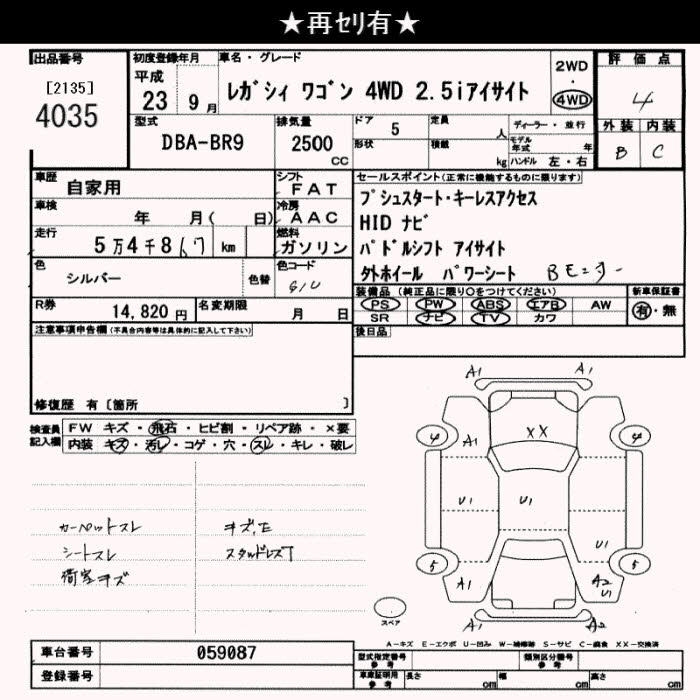 ★再セリ有★
出品番号
[2135]
4035
初度登録年月
平成
23年 9月
車名・グレード
レガシィ ワゴン 4WD 2.5iアイサイト
2WD
・
4WD
評価点
4
外装 内装
B C
型式
DBA-BR9
排気量
2500
CC
ドア 5
形状
定員
人
積載
kg
ディーラー・並行
モデル年式 年
ハンドル 左・右
車歴
自家用
シフト
FAT
車検
年 月( 日)
冷房
AAC
走行
5万4千867 km
燃料
ガソリン
色
シルバー
色替
色コード
G1U
R券
14,820円
名変期限
月 日
セールスポイント(正常に機能するものに限ります)
プッシュスタート・キーレスアクセス
HID ナビ
パドルシフト アイサイト
外ホイール パワーシート Bモニター
装備品(純正品に限り○をつけてください)
PS PW ABS エアB AW
SR ナビ TV カワ
新車保証書
有・無
後日品
注意事項申告欄(不具合内容等は具体的に記入して下さい)
修復歴 有〔箇所 〕
検査員記入欄
FW キズ・飛石・ヒビ割・リペア跡・×要
内装 キズ・汚レ・コゲ・穴・スレ・キレ・破レ
カーペットスレ
シートスレ
荷室キズ
キズ、E
スタッドレスT
A1 A1
4 4
A1
XX
U1 U1
U1
5 5
A1 A2
U1
A1 A1
スペア
A-キズ E-エクボ U-凹み W-補修跡 S-サビ C-腐食 XX-交換済
車台番号 059087
登録番号
型式指定番号 参考
類別区分番号 参考
車庫証明用 参考
長さ cm 幅 cm 高さ cm